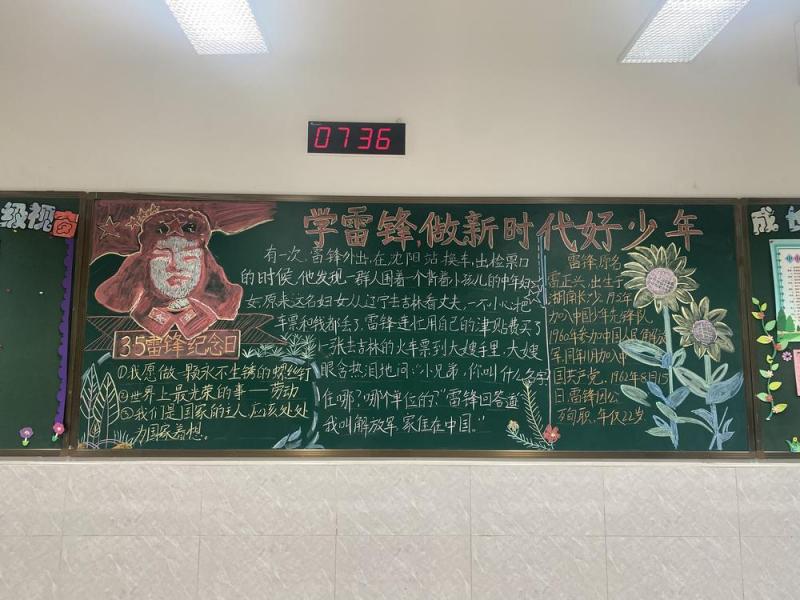 0736
级视窗
学雷锋,做新时代好少年
3.5雷锋纪念日
①我愿做一颗永不生锈的螺丝钉
②世界上最光荣的事——劳动
③我们是国家的主人,应该处处
为国家着想。
有一次,雷锋外出,在沈阳站换车,出检票口
的时候,他发现一群人围着一个背着小孩儿的中年妇
女,原来这名妇女从辽宁去吉林看丈夫,一不小心把
车票和钱都丢了。雷锋连忙用自己的津贴费买了
一张去吉林的火车票到大嫂手里,大嫂
眼含热泪地问:“小兄弟,你叫什么名字
住哪?哪个单位的?”雷锋回答道
我叫解放军,家住在中国。”
雷锋原名
雷正兴,出生于
湖南长沙,
加入中国少年先锋队
1960年参加中国人民解放
军,同年11月加入中
国共产党。1962年8月15
日,雷锋因公
殉职,年仅22岁
成